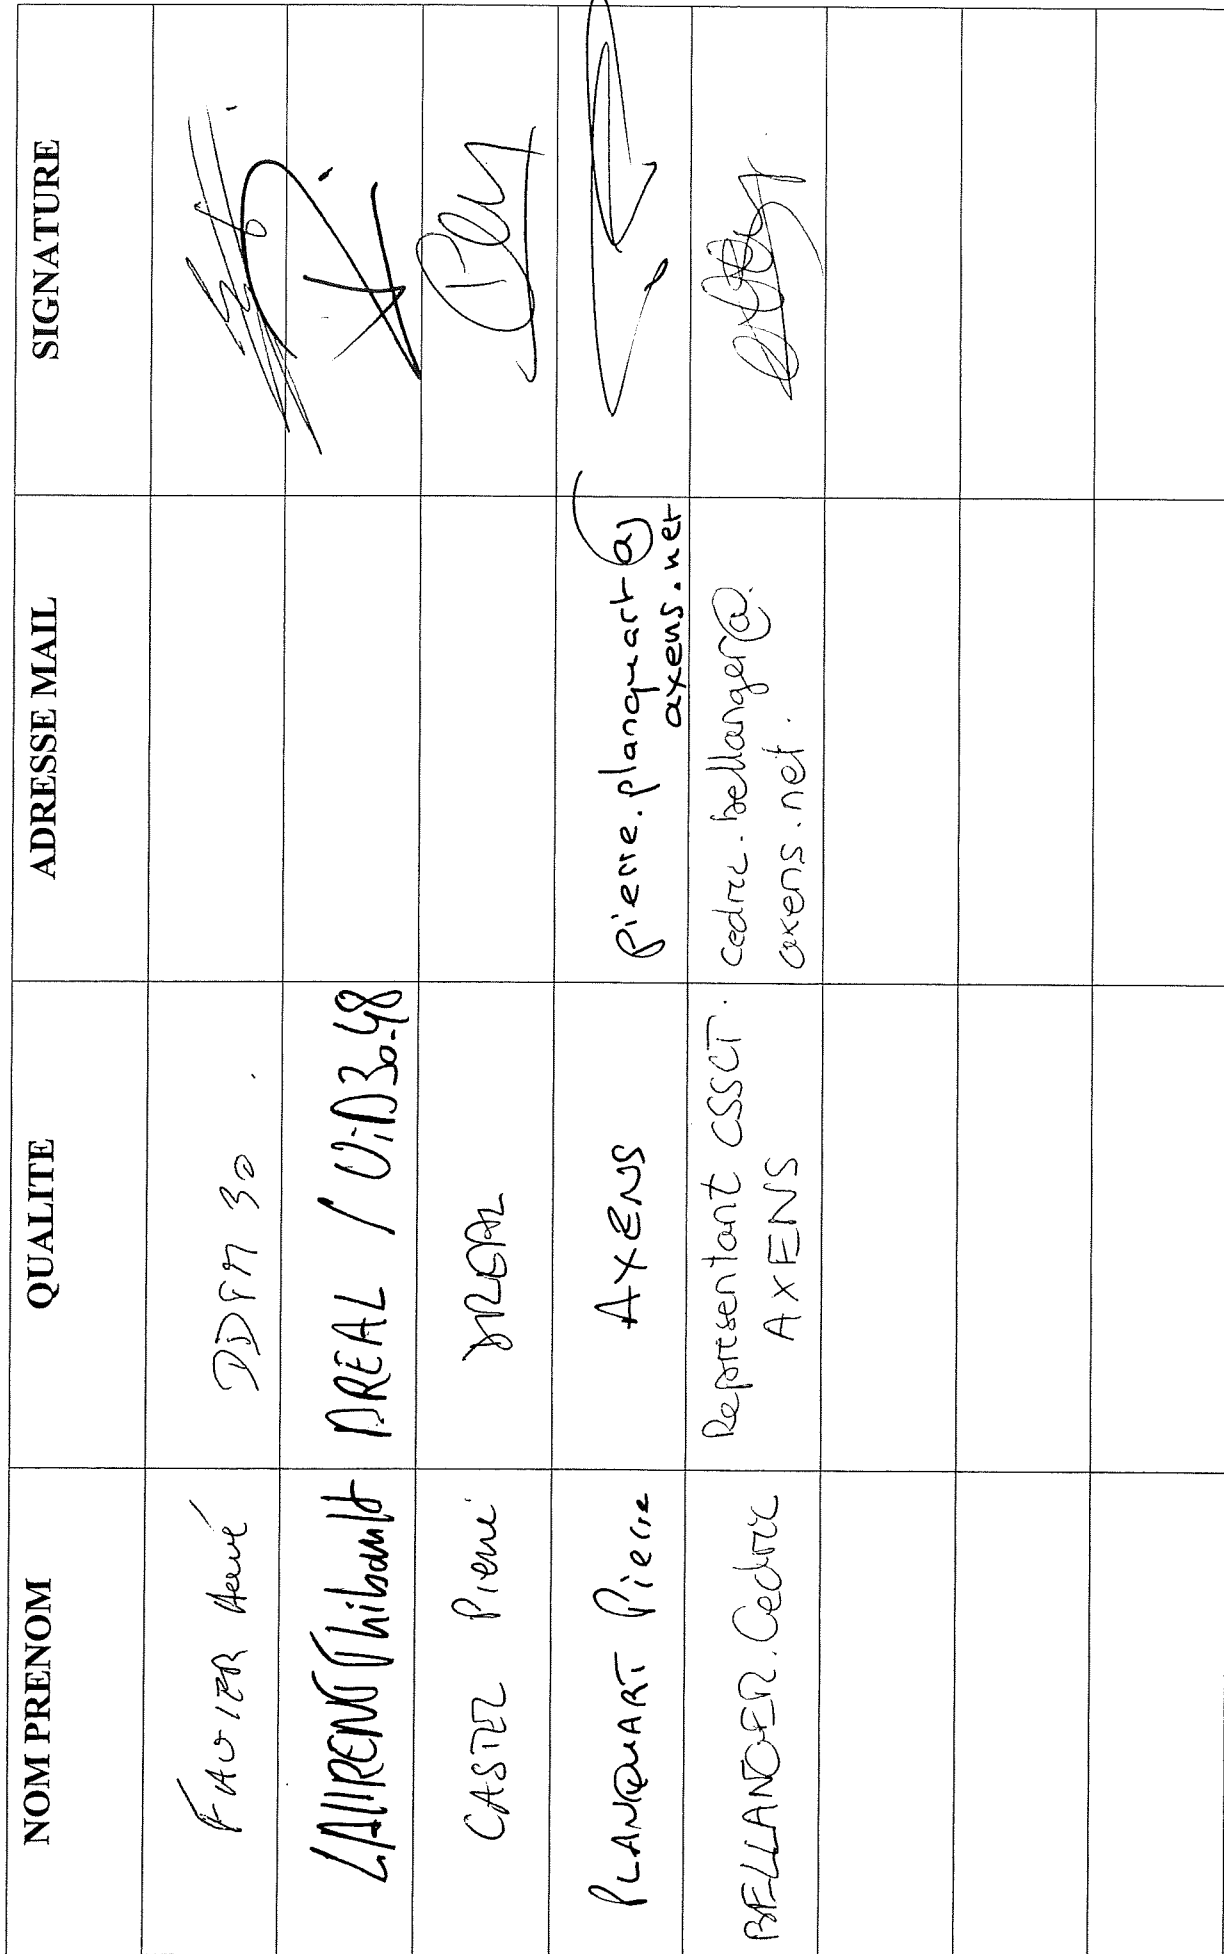 NOM PRENOM QUALITE ADRESSE MAIL SIGNATURE
FAVIER Hervé DDTM 30
LAURENT Thibault DREAL / UiD30-48
CASTEL Pierre DREAL
PLANQUART Pierre AXENS pierre.planquart@
axens.net
BELLANGER. Cedric Representant CSSCT. cedric.bellanger@.
AXENS axens.net.